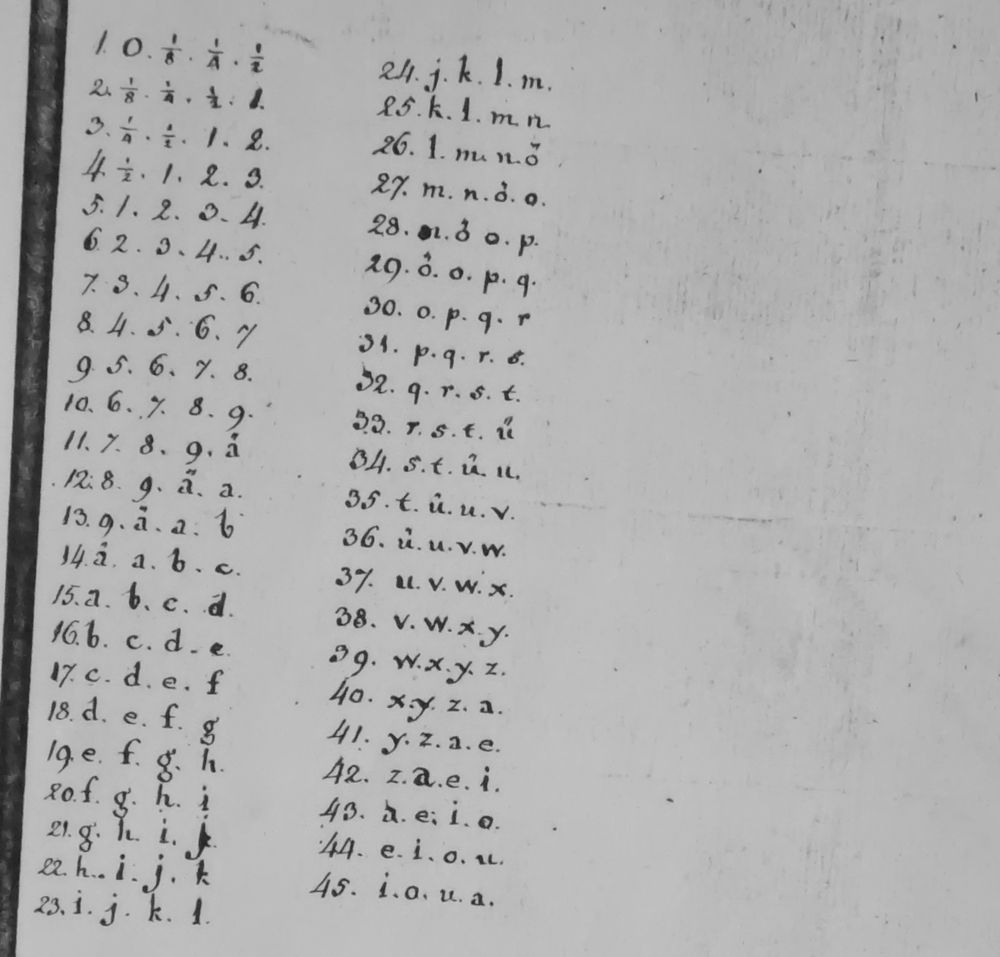 1. 0. 1/8. 1/4. 1/2
2. 1/8. 1/4. 1/2. 1.
3. 1/4. 1/2. 1. 2.
4. 1/2. 1. 2. 3.
5. 1. 2. 3. 4.
6. 2. 3. 4.. 5.
7. 3. 4. 5. 6.
8. 4. 5. 6. 7
9. 5. 6. 7. 8.
10. 6. 7. 8. 9.
11. 7. 8. 9. å
12. 8. 9. å. a.
13. 9. å. a. b
14. å. a. b. c.
15. a. b. c. d.
16. b. c. d. e.
17. c. d. e. f
18. d. e. f. g
19. e. f. g. h.
20. f. g. h. i
21. g. h. i. j.
22. h.. i. j. k
23. i. j. k. l.
24. j. k. l. m.
25. k. l. m. n.
26. l. m. n. o̊
27. m. n. o̊. o.
28. n. o̊ o. p.
29. o̊. o. p. q.
30. o. p. q. r
31. p. q. r. s.
32. q. r. s. t.
33. r. s. t. ů
34. s. t. ů. u.
35. t. ů. u. v.
36. ů. u. v. w.
37. u. v. w. x.
38. v. w. x. y.
39. w. x. y. z.
40. x. y. z. a.
41. y. z. a. e.
42. z. a. e. i.
43. a. e. i. o.
44. e. i. o. u.
45. i. o. u. a.